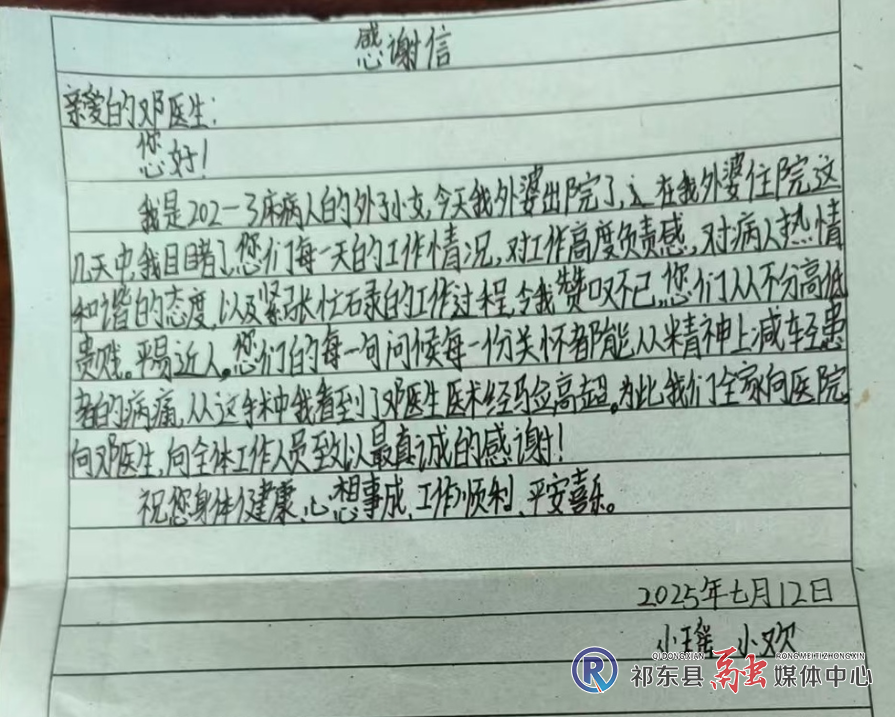 感谢信
亲爱的邓医生：
您好！
我是202-3床病人的外孙女，今天我外婆出院了，在我外婆住院这
几天中，我目睹了您们每一天的工作情况，对工作高度负责感，对病人热情
和谐的态度，以及紧张忙碌的工作过程，令我赞叹不已，您们从不分高低
贵贱。平易近人。您们的每一句问候每一份关怀都能从精神上减轻患
者的病痛，从这手术中我看到了邓医生医术经验高超。为此我们全家向医院。
向邓医生，向全体工作人员致以最真诚的感谢！
祝您身体健康、心想事成、工作顺利、平安喜乐。
2025年七月12日
小瑶 小欢
QIDONGXIAN RONGMEITIZHONGXIN
祁东县融媒体中心